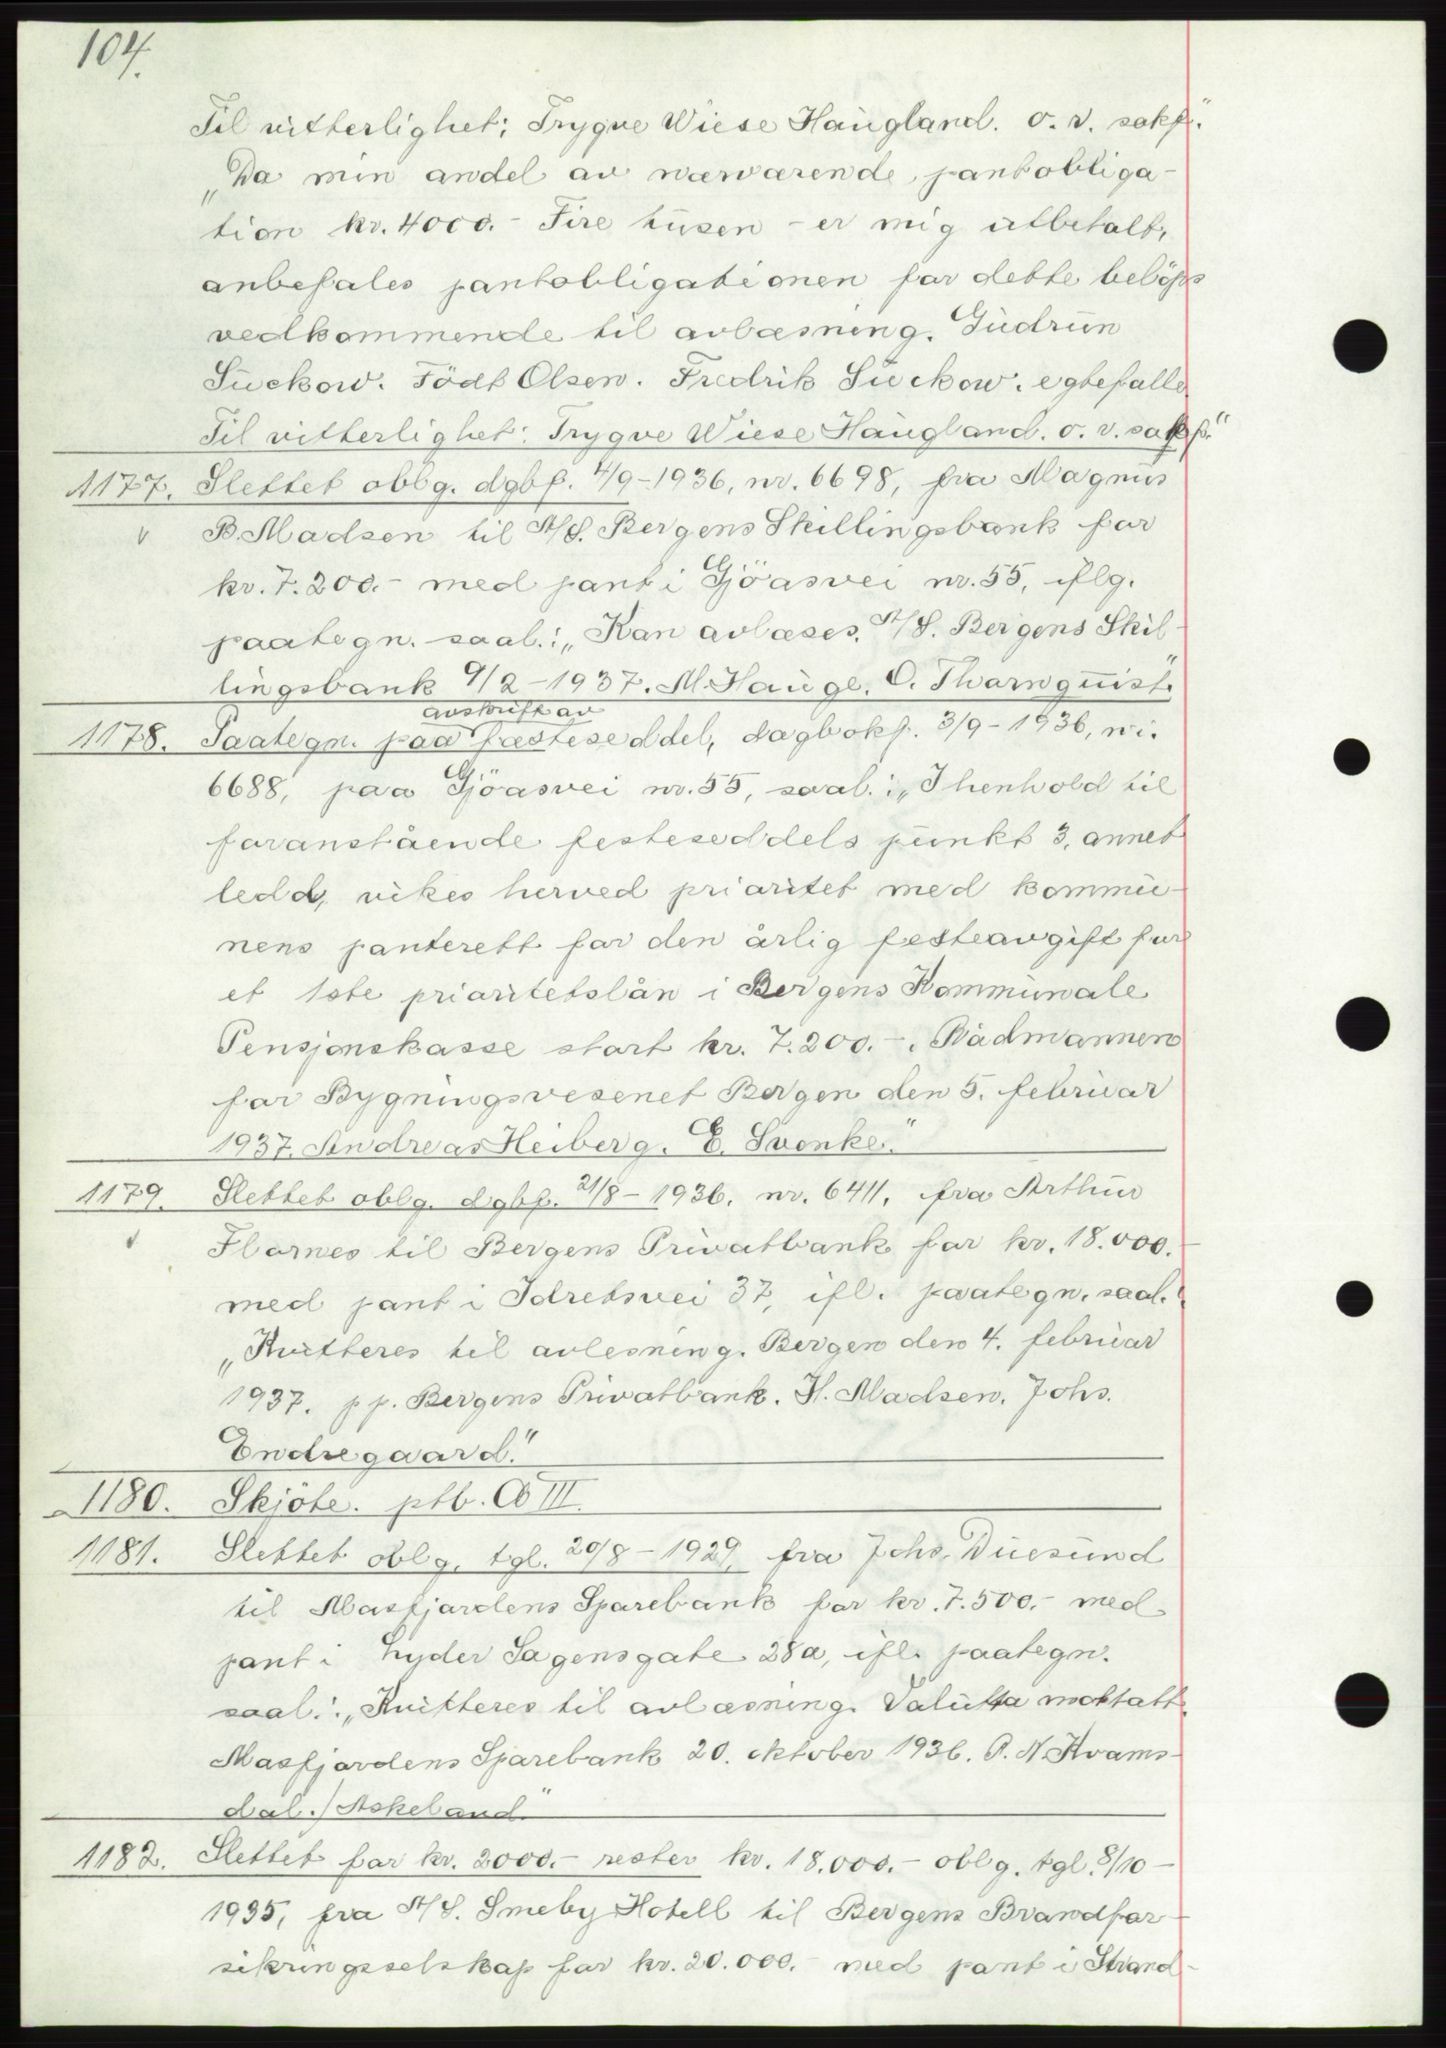 104.
Til vitterlighet: Trygve Wiese Haugland. o. r. sakf."
„Da min andel av nærværende pantobliga-
tion kr. 4000.- Fire tusen - er mig utbetalt,
anbefales pantobligationen for dette beløps
vedkommende til avlæsning. Gudrun
Suckow. Født Olsen. Fredrik Suckow. egtefelle
Til vitterlighet: Trygve Wiese Haugland. o. r. sakf."
1177. Slettet oblg. dgbf. 4/9-1936, nr. 6698, fra Magnus
v B. Madsen til A/S. Bergens Skillingsbank for
kr. 7.200.- med pant i Gjøasvei nr. 55, iflg.
paategn. saal.: „Kan avlæses. A/S. Bergens Skil-
lingsbank 9/2-1937. M. Haugl. C. Thornquist."
avskrift av
1178. Paategn. paa fæsteseddel, dagbokf. 3/9-1936, nr.
6688, paa Gjøasvei nr. 55, saal.: „I henhold til
foranstående festeseddels punkt 3, annet
ledd, vikes herved prioritet med kommu-
nens panterett for den årlig festeavgift for
et 1ste prioritetslån i Bergens Kommunale
Pensjonskasse stort kr. 7.200.-. Rådmannen
for Bygningsvesenet Bergen den 5. februar
1937. Andreas Heiberg. E. Svenke."
1179. Slettet oblg. dgbf. 21/8-1936. nr. 6411, fra Arthur
v Flornes til Bergens Privatbank for kr. 18.000.-
med pant i Idretsvei 37, ifl. paategn. saal.:
„Kvitteres til avlesning. Bergen den 4. februar
1937. pp. Bergens Privatbank. H. Madsen. Johs.
Endregaard."
1180. Skjøte. ptb. Cb III.
1181. Slettet oblg. tgl. 20/8-1929, fra Johs. Duesund
til Masfjordens Sparebank for kr. 7.500.- med
pant i Lyder Sagensgate 28a, ifl. paategn.
saal.: „Kvitteres til avlæsning. Valutta mottatt.
Masfjordens Sparebank 20. oktober 1936. P. N. Kvams-
dal./Askeland"
1182. Slettet for kr. 2000.- rester kr. 18.000.- oblg. tgl. 8/10-
1935, fra A/S. Smeby Hotell til Bergens Brandfor-
sikringsselskap for kr. 20.000.- med pant i Strand-